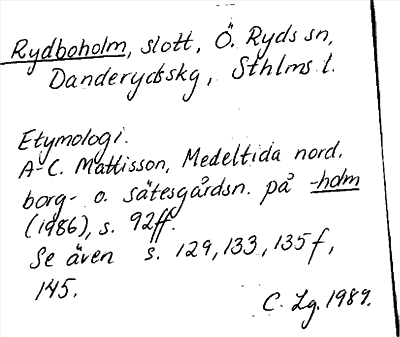 Rydboholm, slott, Ö. Ryds sn,
Danderydskg, Sthlms l.
Etymologi.
A-C. Mattisson, Medeltida nord.
borg- o. sätesgårdsn. på -holm
(1986), s. 92ff.
Se även s. 129, 133, 135f,
145.
C. Lg. 1989.